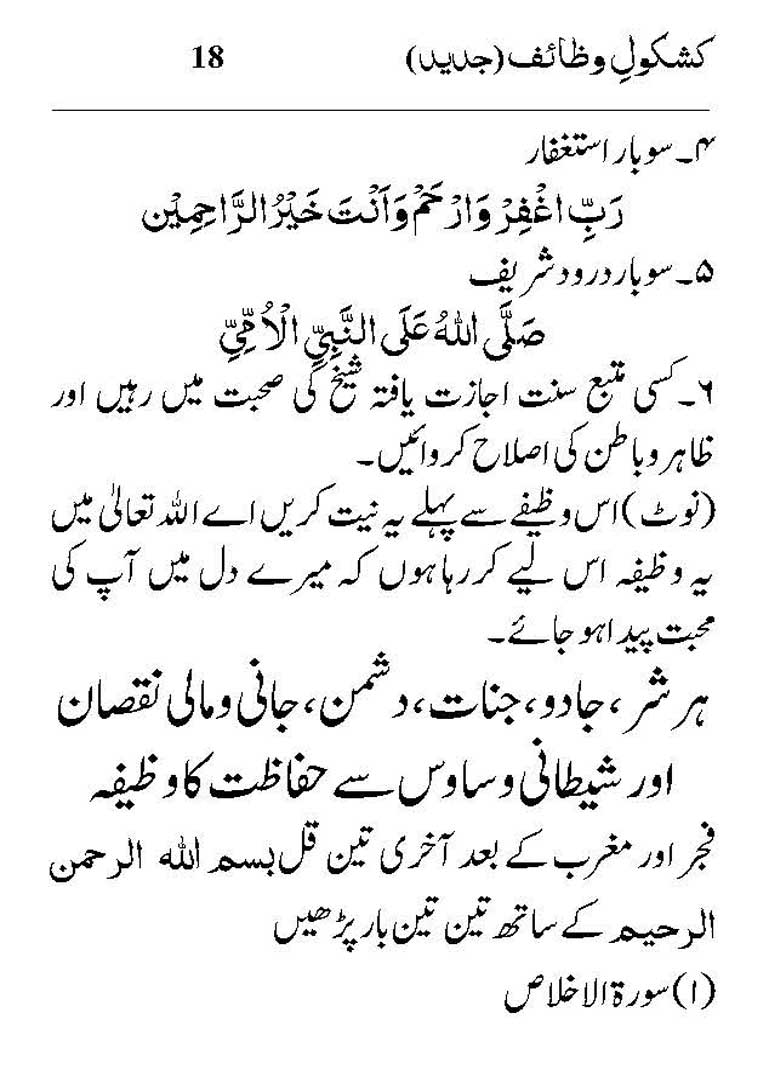 کشکولِ وظائف (جدید) 18
۴۔ سو بار استغفار
رَبِّ اغْفِرْ وَارْحَمْ وَاَنْتَ خَيْرُ الرَّاحِمِيْن
۵۔ سو بار درود شریف
صَلَّى اللهُ عَلَى النَّبِيِّ الْاُمِّيِّ
۶۔ کسی متبع سنت اجازت یافتہ شیخ کی صحبت میں رہیں اور
ظاہر و باطن کی اصلاح کروائیں۔
(نوٹ) اس وظیفے سے پہلے یہ نیت کریں اے اللہ تعالیٰ میں
یہ وظیفہ اس لیے کر رہا ہوں کہ میرے دل میں آپ کی
محبت پیدا ہو جائے۔
ہر شر، جادو، جنات، دشمن، جانی و مالی نقصان
اور شیطانی وساوس سے حفاظت کا وظیفہ
فجر اور مغرب کے بعد آخری تین قل بسم الله الرحمن
الرحيم کے ساتھ تین تین بار پڑھیں
(۱) سورة الاخلاص